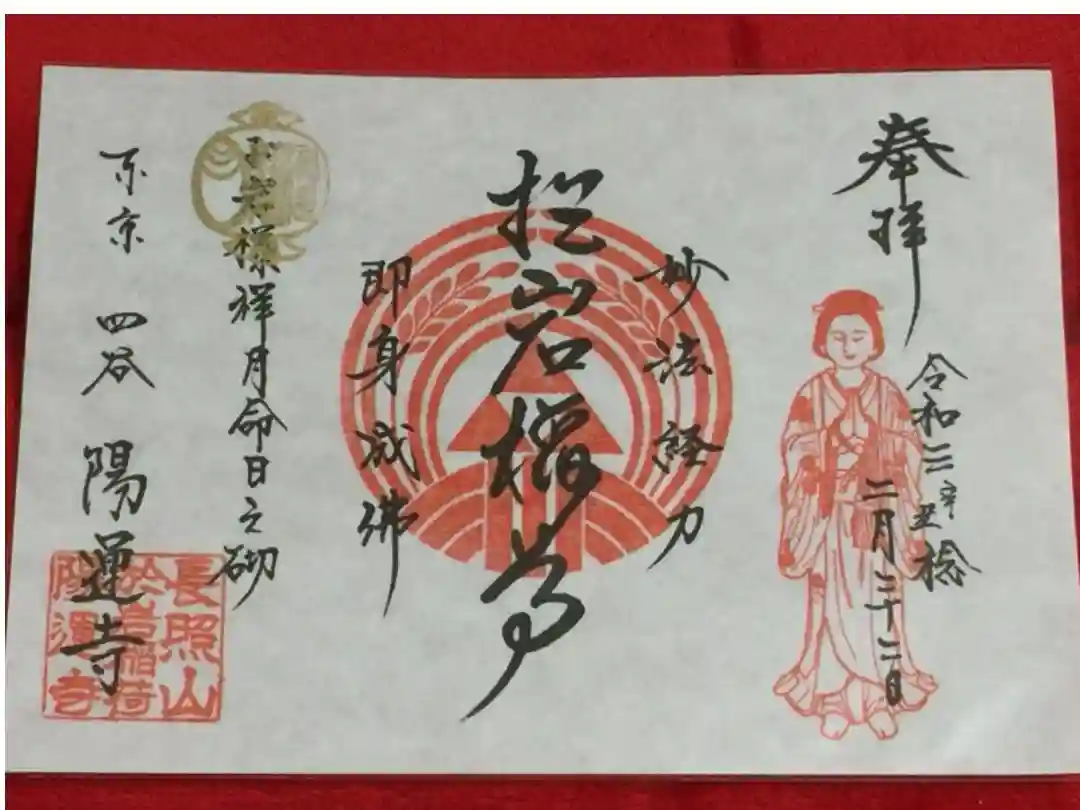 奉拝
令和三辛丑稔
二月二十二日
妙法経力
於岩 尊
即身成佛
お岩様祥月命日之砌
東京 四谷 陽運寺
長照山
於岩稲荷
陽運寺